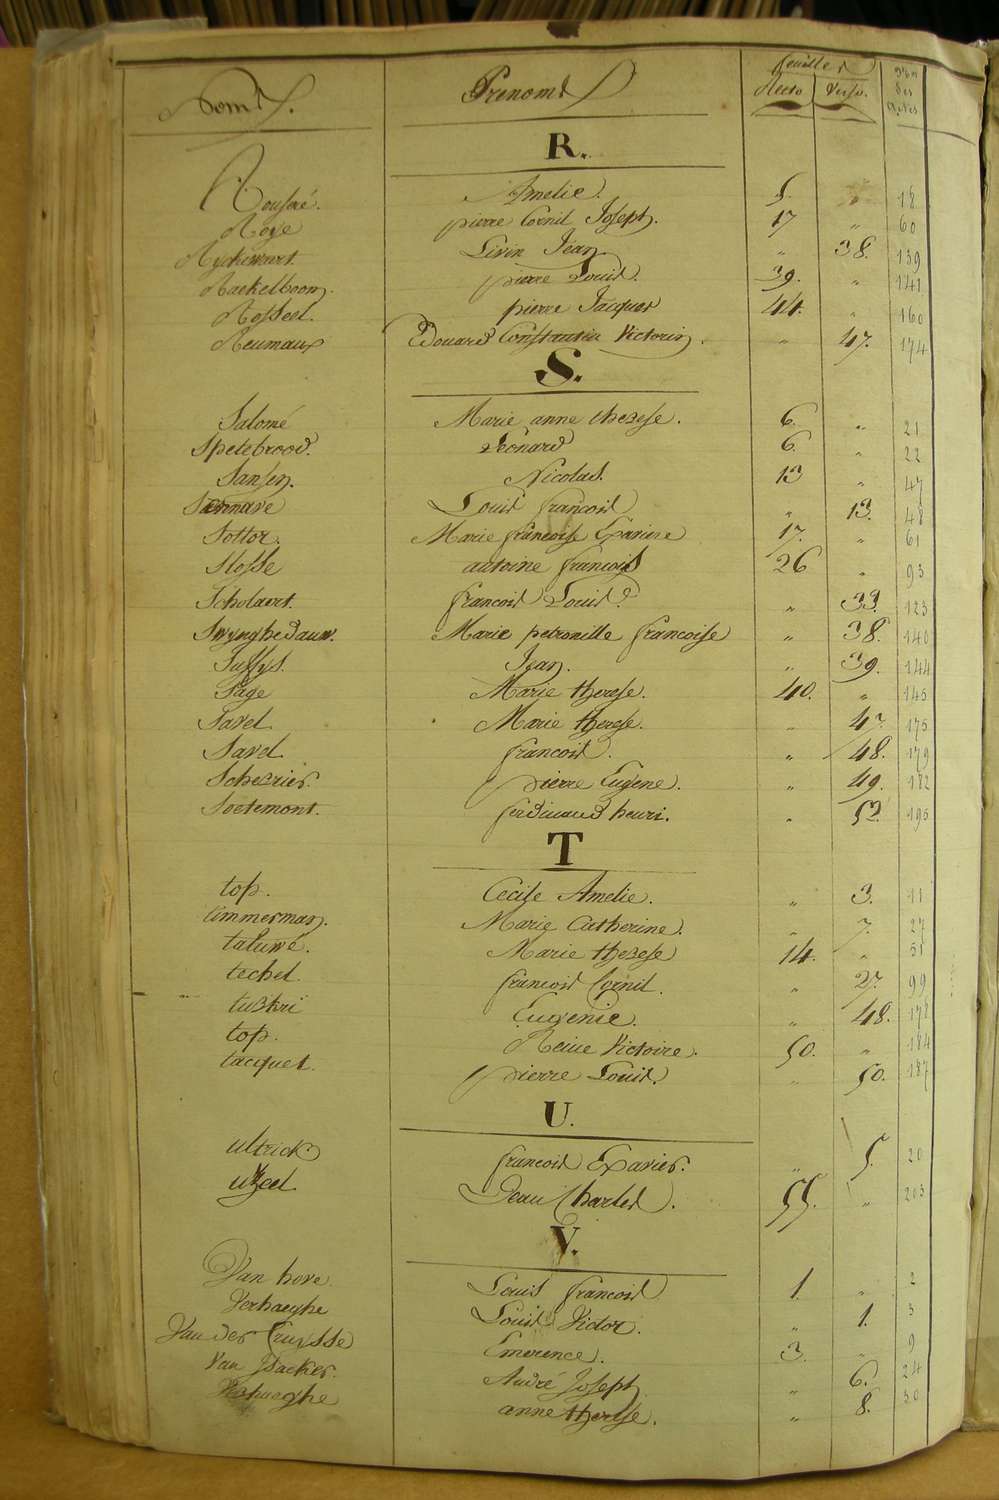 Noms. Prenoms feuilles Nos des Actes
Recto Verso.
R.
Amelie. 5. " 18
Roye pierre Cornil Joseph. 17 " 60
Livin Jean " 38. 139
Raekelboom. pierre Louis. 39. " 141
Rosseel. pierre Jacques 44. " 160
Reumaux Edouard Constantin Victorin. " 47. 174
S.
Salomé Marie anne therese. 6. " 21
Spetebrood. Léonard 6. " 22
Sansen. Nicolas. 13 " 47
Sennave Louis francois " 13. 48
Sottor. Marie francoise Exaviere 17. " 61
Slosse antoine francois 26 " 93
Scholaert. francois Louis " 33. 123
Swynghedauw. Marie petronille francoise " 38. 140
Suffys. Jean. " 39. 144
Sage Marie therese. 40. " 145
Savel Marie therese. " 47 175
Savel francois. " 48. 179
Scherrier. pierre Eugene. " 49. 182
Soetemont. ferdinand henri. " 52. 195
T
top. Cecile Amelie. " 3. 11
timmerman. Marie Catherine. " 7. 27
taluwé. Marie therese 14. " 51
techel francois Cornil. " 27. 99
Eugenie. " 48. 178
top. Reine Victoire. 50. " 184
tacquet. pierre Louis. " 50. 187
U.
ultrick francois Exavier. " 5. 20
uzeel Jean Charles. 55. " 203
V.
Van hove. Louis francois 1. " 2
Verhaeghe Louis Victor. " 1. 3
Van der Cruysse Emerence. 3. " 9
Van Isacker. André Joseph. " 6. 24
Verhaeghe anne therese. " 8. 30